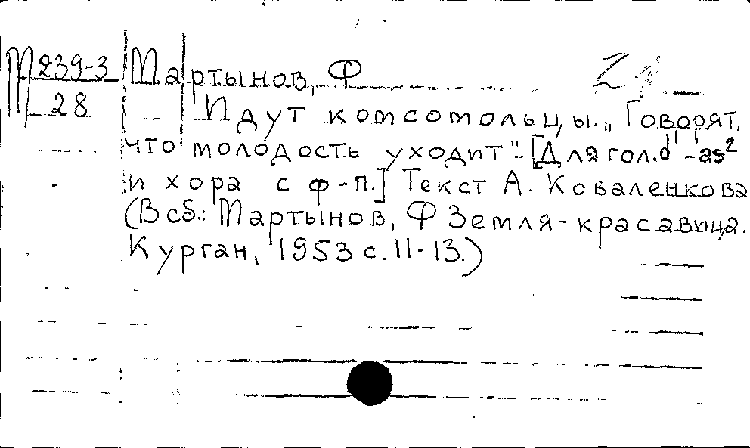 М 239-3 Мартынов, Ф
28 Идут комсомольцы. „Говорят,
что молодость уходит". [Для гол. d¹-as²
и хора с ф-п.] Текст А. Коваленкова
(В сб.: Мартынов, Ф Земля-красавица.
Курган, 1953 с. 11-13.)